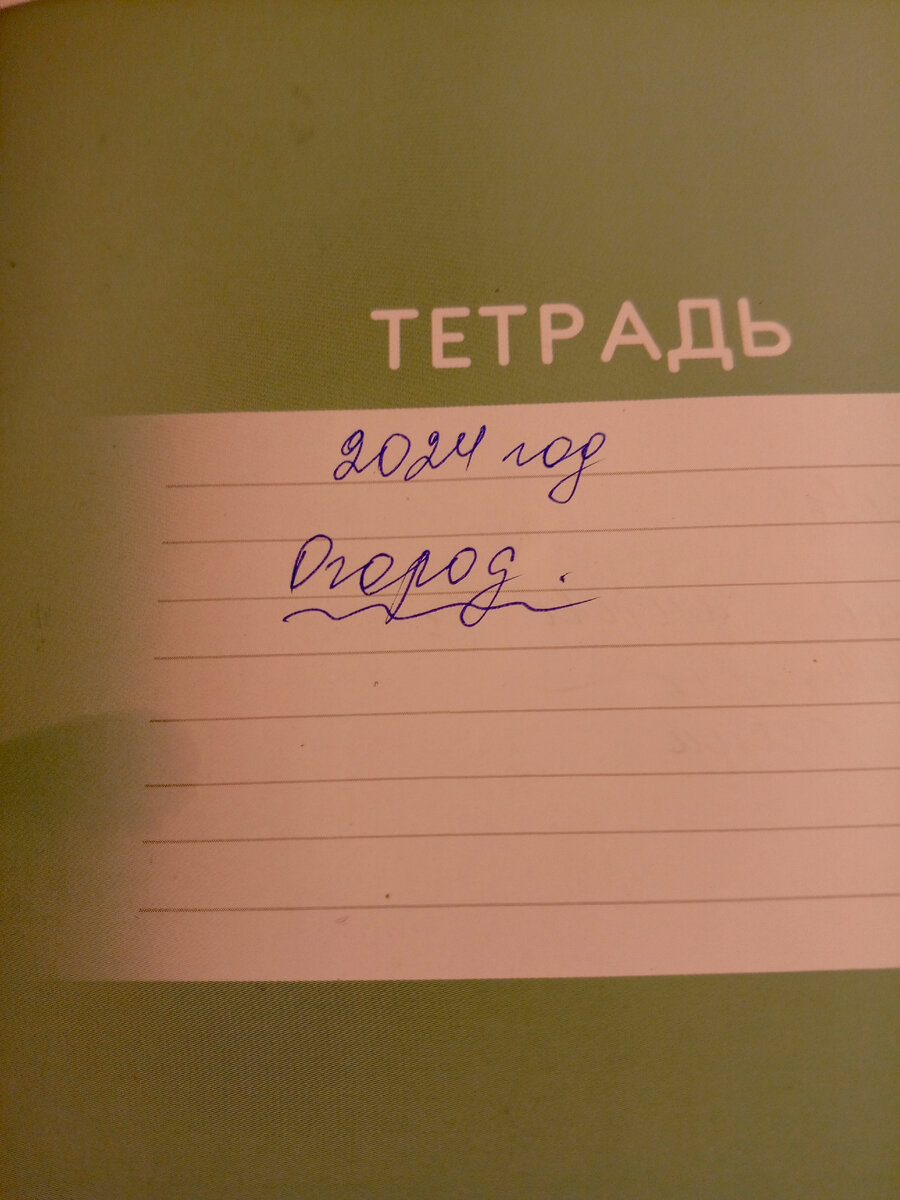 ТЕТРАДЬ
2024 год
Огород.